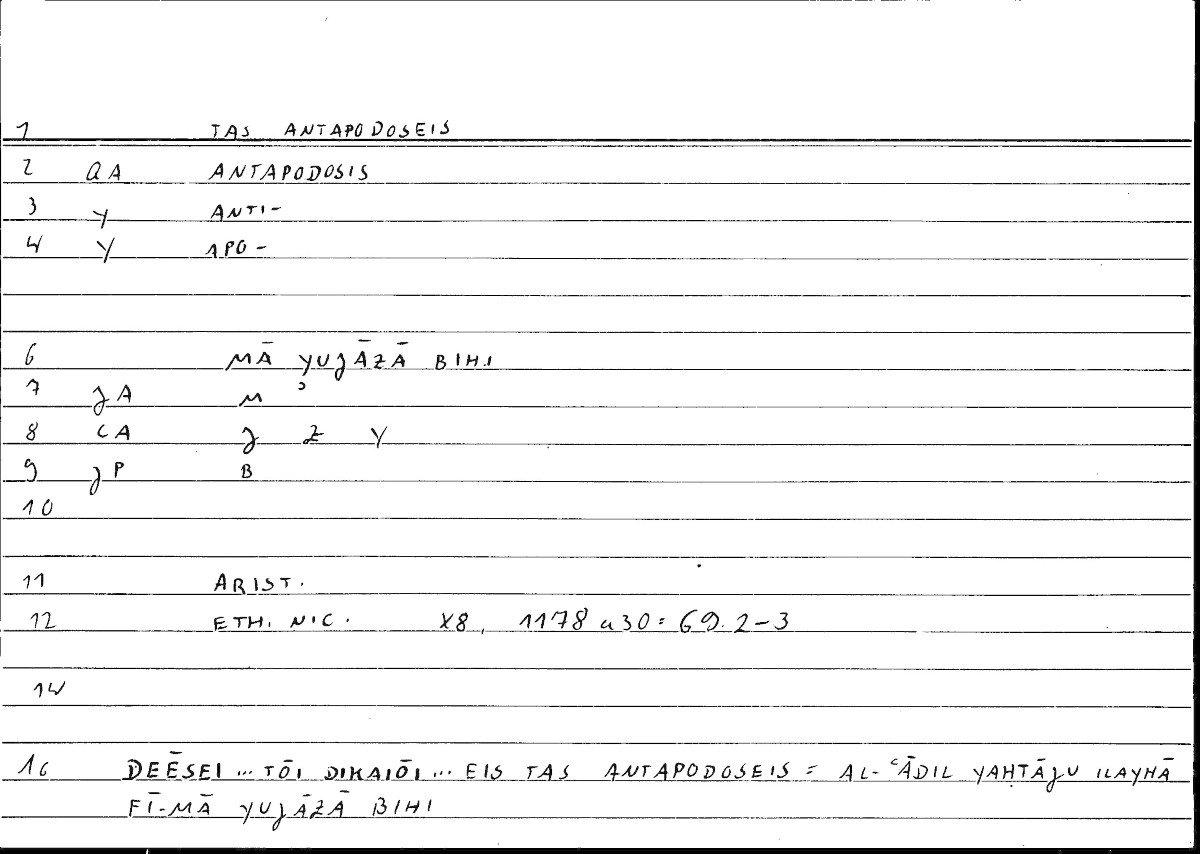 1 TAS ANTAPODOSEIS
2 QA ANTAPODOSIS
3 Y ANTI-
4 Y APO-
6 MĀ YUJĀZĀ BIHI
7 JA M ʾ
8 CA J Z Y
9 JP B
10
11 ARIST.
12 ETH. NIC. X8, 1178 a30 = 69.2-3
14
16 DEĒSEI ... TŌI DIKAIŌI ... EIS TAS ANTAPODOSEIS = AL-ʿĀDIL YAḤTĀJU ILAYHĀ
FĪ-MĀ YUJĀZĀ BIHI